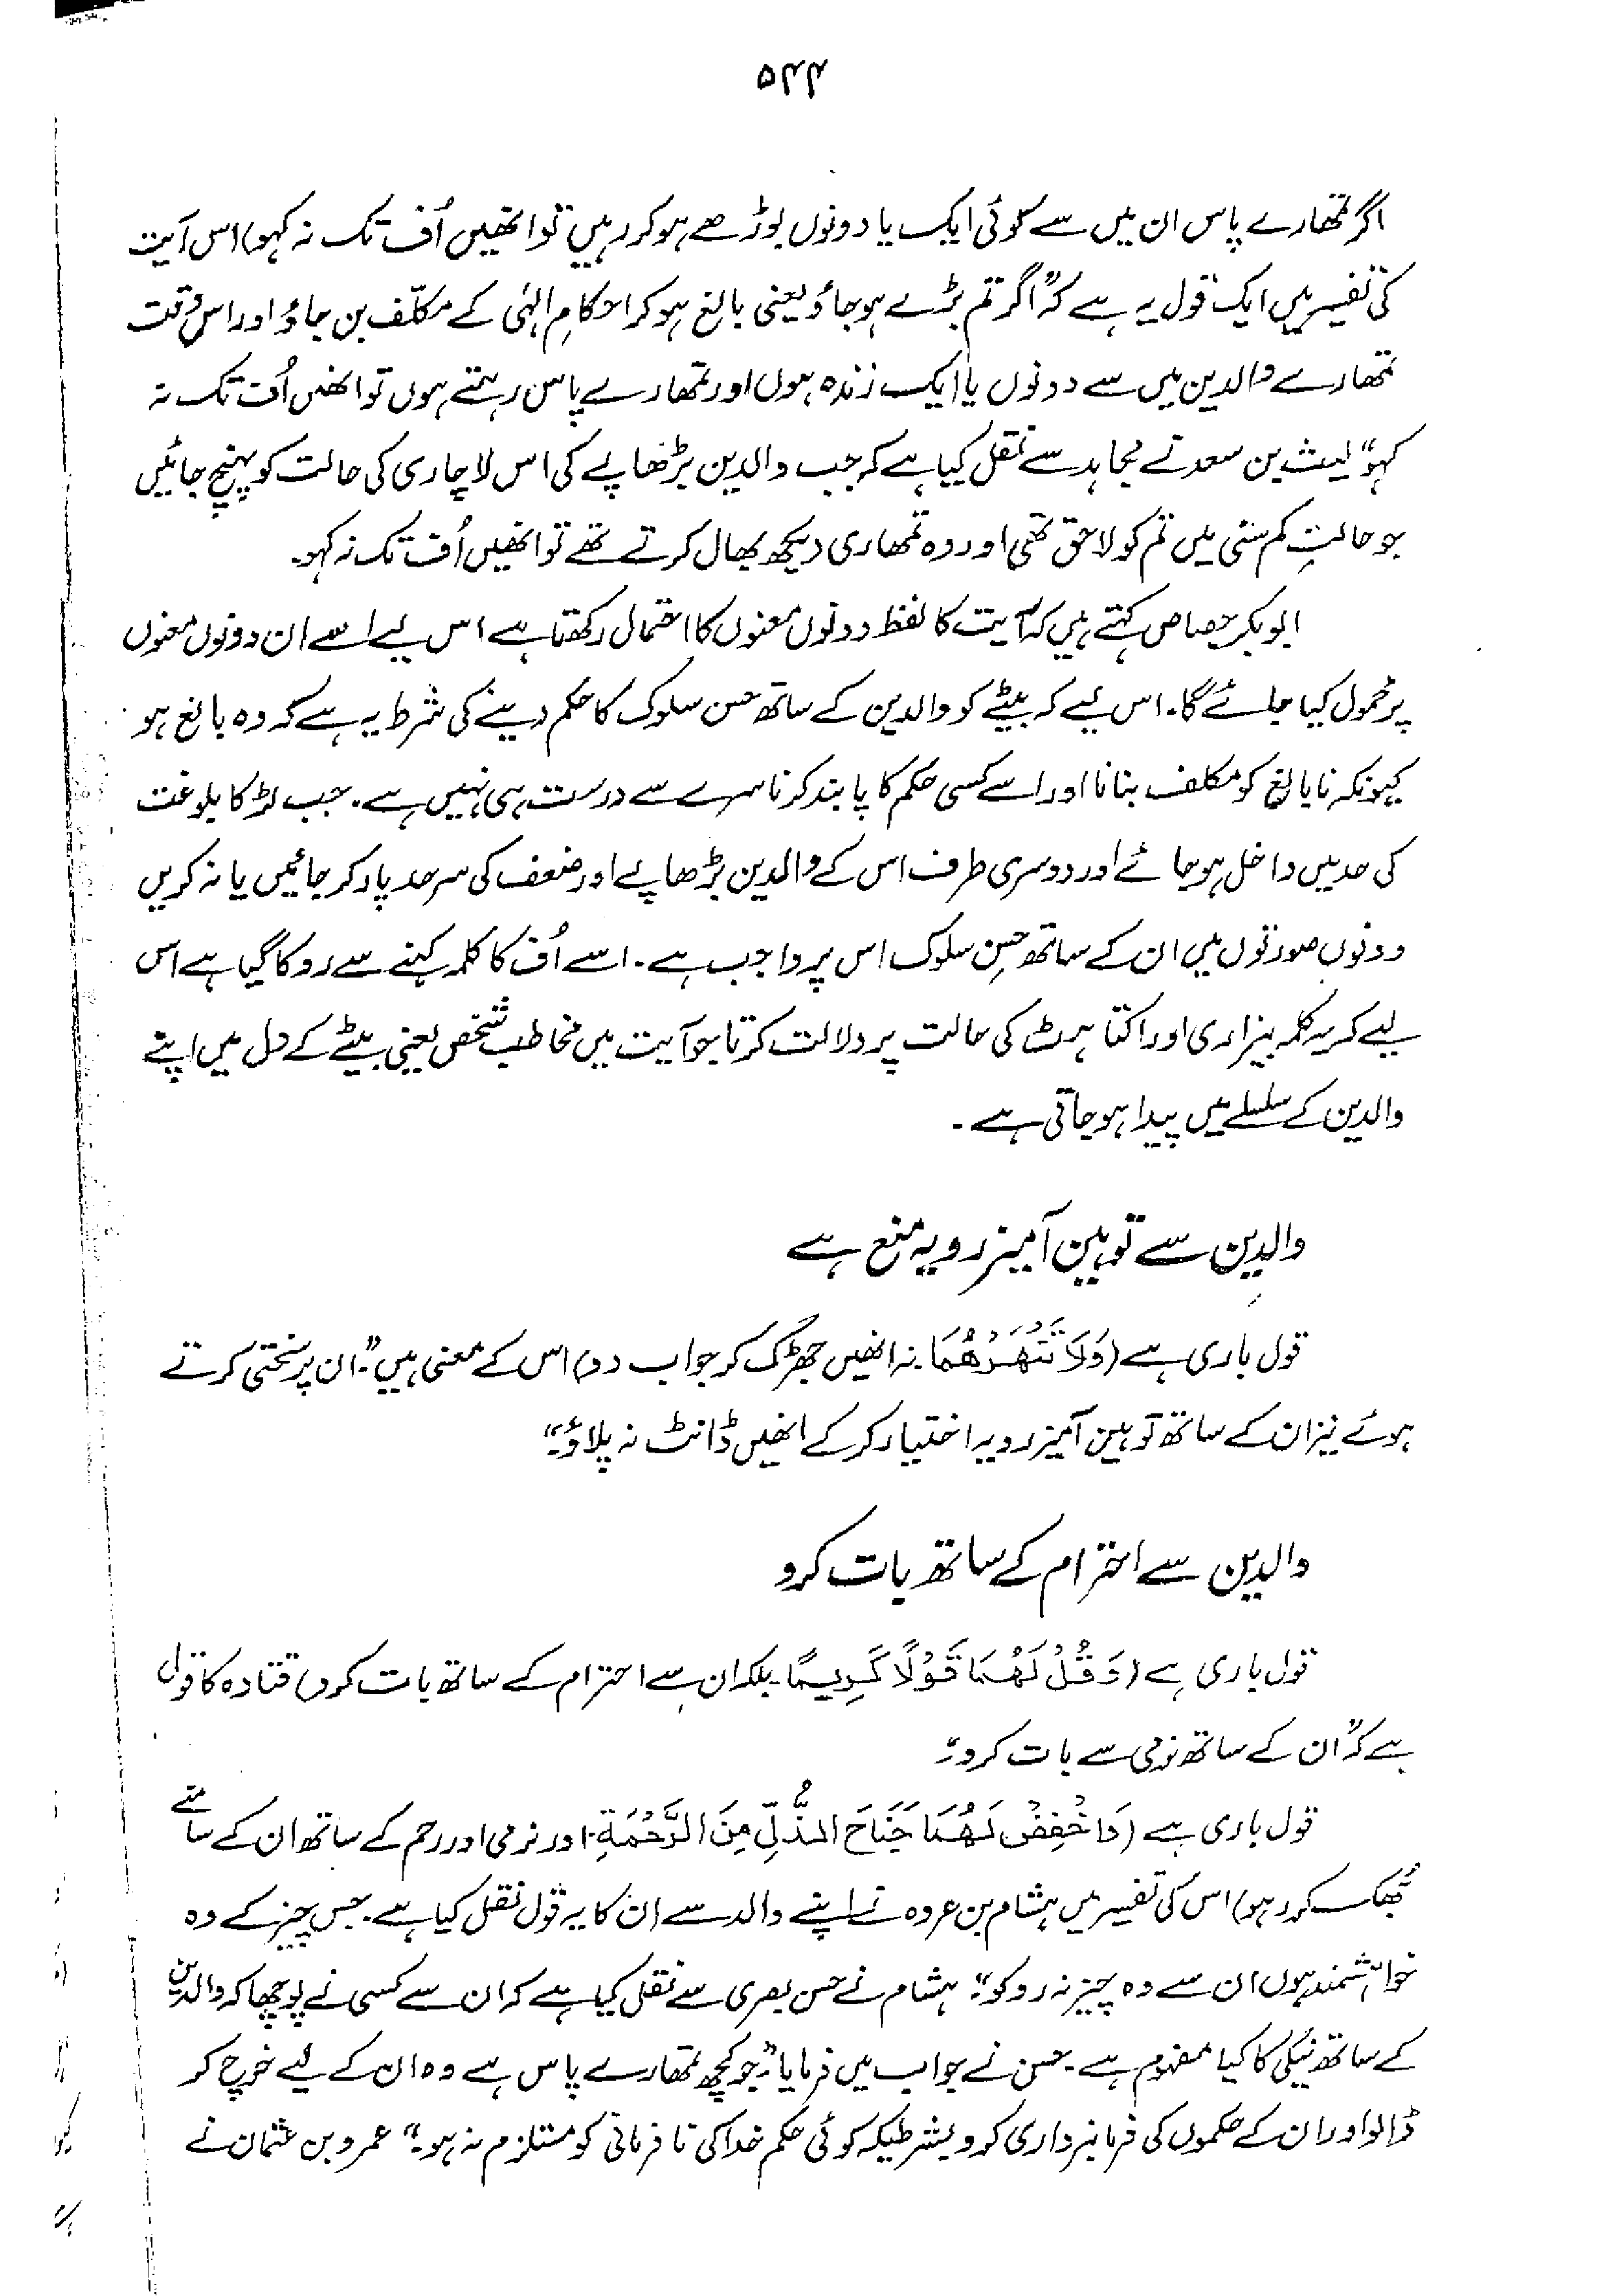 ۵۴۴
اگر تمھارے پاس ان میں سے کوئی ایک یا دونوں بوڑھے ہو کر رہیں تو انھیں اُف تک نہ کہو) اس آیت
کی تفسیر میں ایک قول یہ ہے کہ "اگر تم بڑے ہو جاؤ یعنی بالغ ہو کر احکامِ الہٰی کے مکلّف بن جاؤ اور اس وقت
تمھارے والدین میں سے دونوں یا ایک زندہ ہوں اور تمھارے پاس رہتے ہوں تو انھیں اُف تک نہ
کہو" لیث بن سعد نے مجاہد سے نقل کیا ہے کہ جب والدین بڑھاپے کی اس لاچاری کی حالت کو پہنچ جائیں
جو حالتِ کم سنی میں تم کو لاحق تھی اور وہ تمھاری دیکھ بھال کرتے تھے تو انھیں اُف تک نہ کہو۔
ابوبکر جصاص کہتے ہیں کہ آیت کا لفظ دونوں معنوں کا احتمال رکھتا ہے اس لیے اسے ان دونوں معنوں
پر محمول کیا جائے گا۔ اس لیے کہ بیٹے کو والدین کے ساتھ حسن سلوک کا حکم دینے کی شرط یہ ہے کہ وہ بالغ ہو
کیونکہ نابالغ کو مکلف بنانا اور اسے کسی حکم کا پابند کرنا سرے سے درست ہی نہیں ہے۔ جب لڑکا بلوغت
کی حد میں داخل ہو جائے اور دوسری طرف اس کے والدین بڑھاپے اور ضعف کی سرحد پار کر جائیں یا نہ کریں
دونوں صورتوں میں ان کے ساتھ حسنِ سلوک اس پر واجب ہے۔ اسے اُف کا کلمہ کہنے سے روکا گیا ہے اس
لیے کہ یہ کلمہ بیزاری اور اکتاہٹ کی حالت پر دلالت کرتا جو آیت میں مخاطب شخص یعنی بیٹے کے دل میں اپنے
والدین کے سلسلے میں پیدا ہو جاتی ہے۔
والدین سے توہین آمیز رویہ منع ہے
قول باری ہے (وَلَا تَنْهَرْهُمَا۔ نہ انھیں جھڑک کر جواب دو) اس کے معنی ہیں "ان پر سختی کرتے
ہوئے نیز ان کے ساتھ توہین آمیز رویہ اختیار کر کے انھیں ڈانٹ نہ پلاؤ۔"
والدین سے احترام کے ساتھ بات کرو
قول باری ہے (وَقُلْ لَهُمَا قَوْلًا كَرِيمًا۔ بلکہ ان سے احترام کے ساتھ بات کرو) قتادہ کا قول
ہے کہ "ان کے ساتھ نرمی سے بات کرو۔"
قول باری ہے (وَاخْفِضْ لَهُمَا جَنَاحَ الذُّلِّ مِنَ الرَّحْمَةِ۔ اور نرمی اور رحم کے ساتھ ان کے سامنے
جُھک کر رہو) اس کی تفسیر میں ہشام بن عروہ نے اپنے والد سے ان کا یہ قول نقل کیا ہے۔ جس چیز کے وہ
خواہشمند ہوں ان سے وہ چیز نہ روکو۔" ہشام نے حسن بصری سے نقل کیا ہے کہ ان سے کسی نے پوچھا کہ والدین
کے ساتھ نیکی کا کیا مفہوم ہے۔ حسن نے جواب میں فرمایا "جو کچھ تمھارے پاس ہے وہ ان کے لیے خرچ کر
ڈالو اور ان کے حکموں کی فرمانبرداری کرو بشرطیکہ کوئی حکم خدا کی نافرمانی کو مستلزم نہ ہو۔" عمرو بن عثمان نے